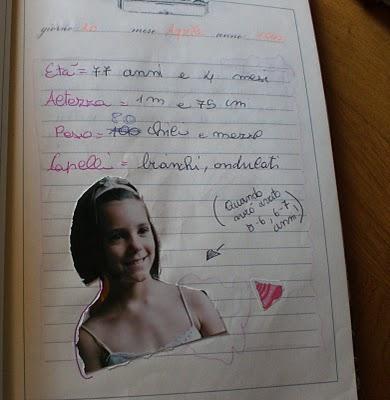 giorno 20 mese Aprile anno
Età = 77 anni e 4 mesi
Altezza = 1m e 75 cm
80
Peso = 100 chili e mezzo
Capelli = bianchi, ondulati
(Quando
avrò
0-6, 6-7,
anni)